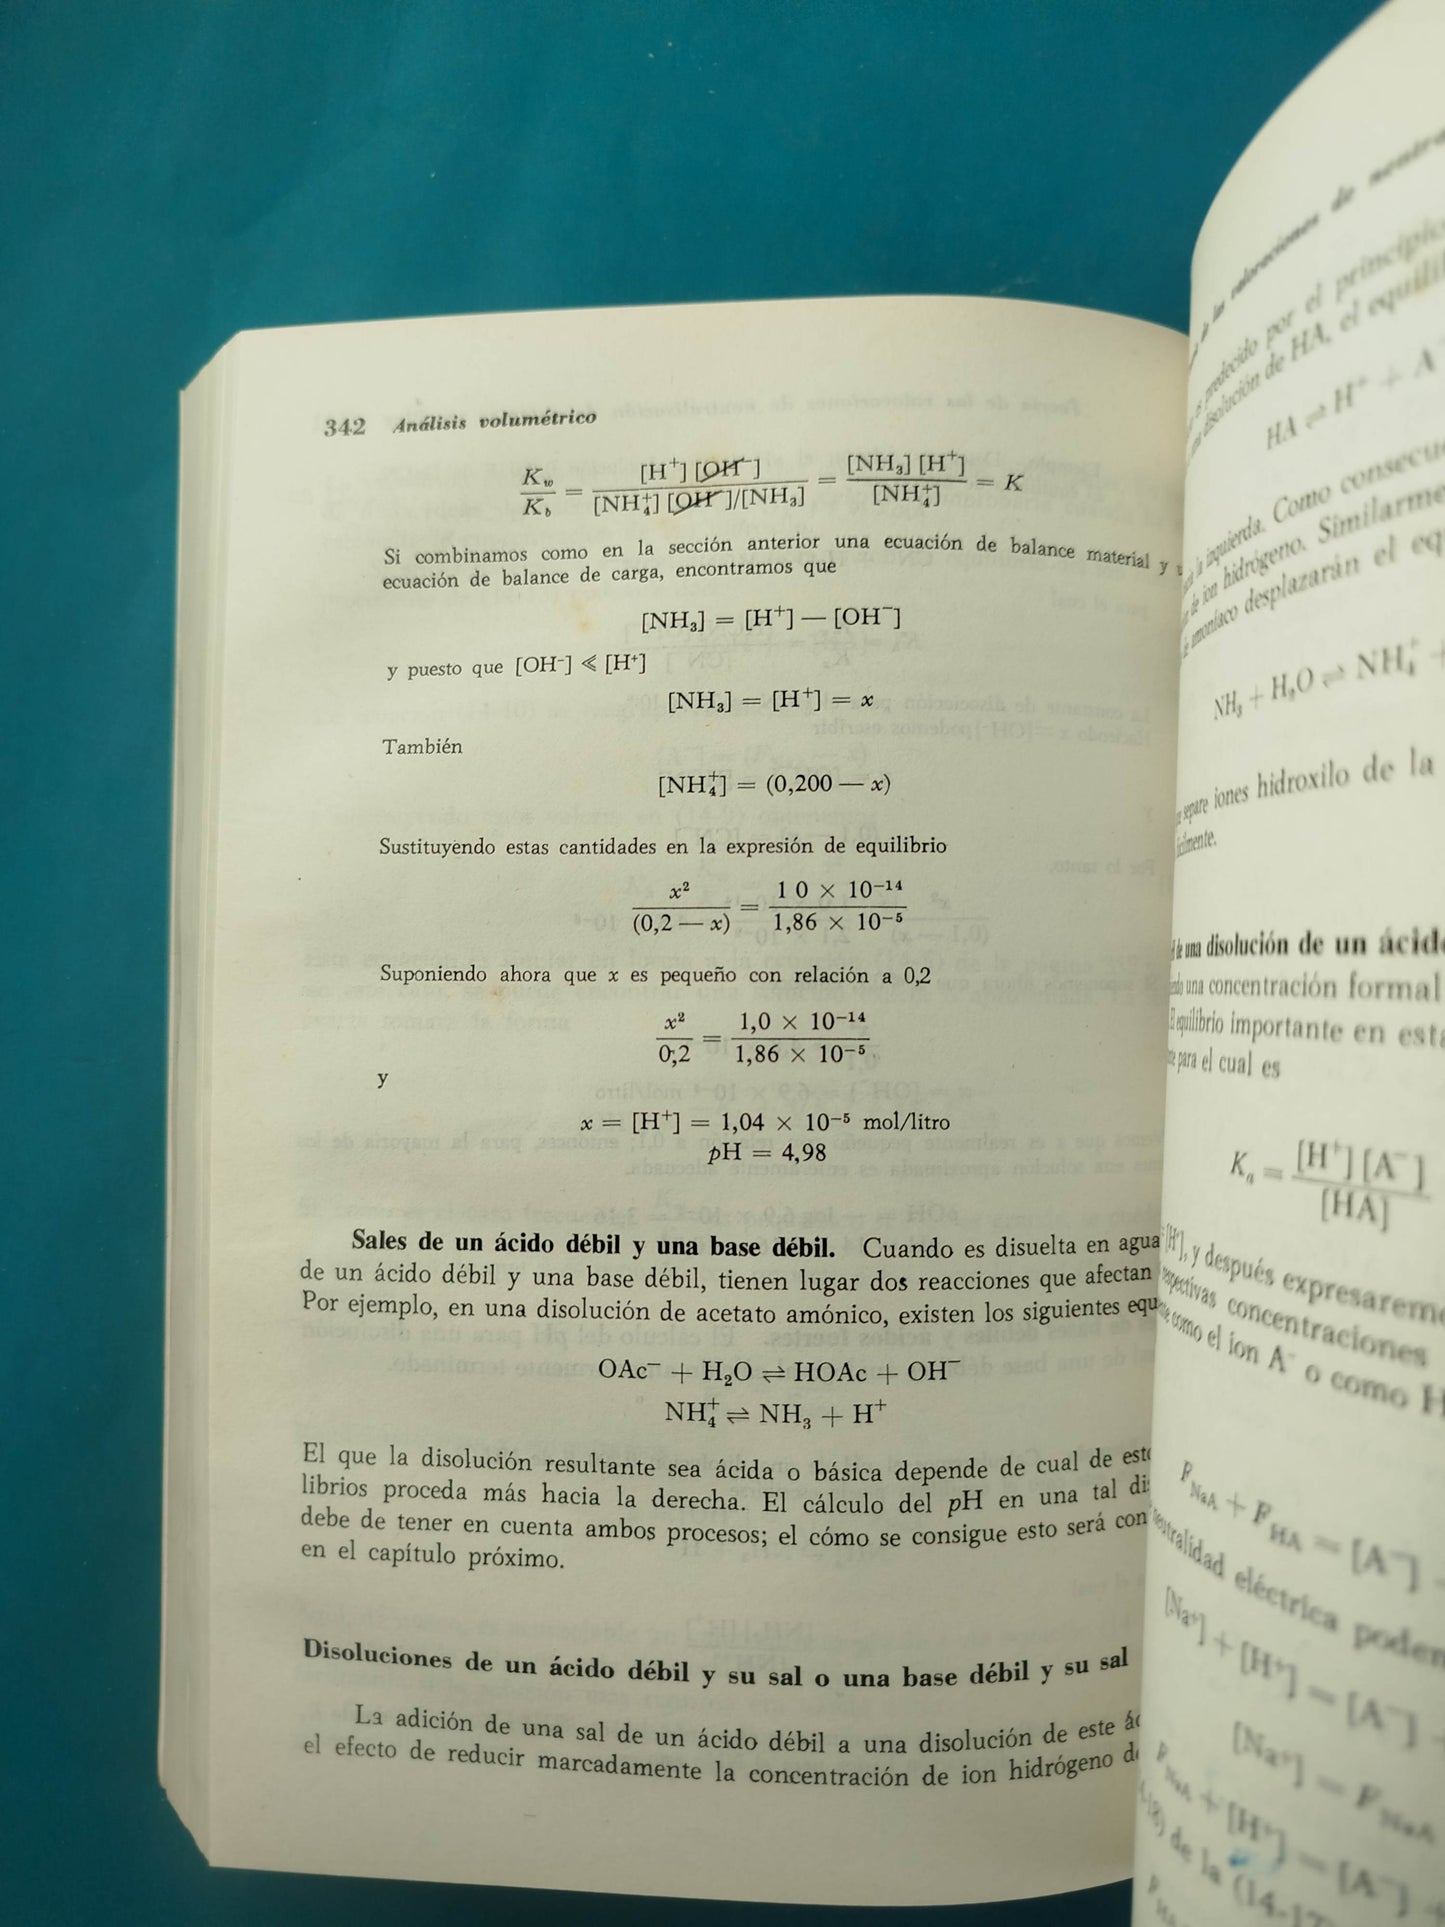 342 Análisis volumétrico
K_w / K_b = [H⁺] [OH⁻] / [NH₄⁺] [OH⁻]/[NH₃] = [NH₃] [H⁺] / [NH₄⁺] = K
Si combinamos como en la sección anterior una ecuación de balance material y
ecuación de balance de carga, encontramos que
[NH₃] = [H⁺] — [OH⁻]
y puesto que [OH⁻] ≪ [H⁺]
[NH₃] = [H⁺] = x
También
[NH₄⁺] = (0,200 — x)
Sustituyendo estas cantidades en la expresión de equilibrio
x² / (0,2 — x) = 1 0 × 10⁻¹⁴ / 1,86 × 10⁻⁵
Suponiendo ahora que x es pequeño con relación a 0,2
x² / 0,2 = 1,0 × 10⁻¹⁴ / 1,86 × 10⁻⁵
y
x = [H⁺] = 1,04 × 10⁻⁵ mol/litro
pH = 4,98
Sales de un ácido débil y una base débil. Cuando es disuelta en agua
de un ácido débil y una base débil, tienen lugar dos reacciones que afectan
Por ejemplo, en una disolución de acetato amónico, existen los siguientes equ
OAc⁻ + H₂O ⇌ HOAc + OH⁻
NH₄⁺ ⇌ NH₃ + H⁺
El que la disolución resultante sea ácida o básica depende de cual de est
librios proceda más hacia la derecha. El cálculo del pH en una tal di
debe de tener en cuenta ambos procesos; el cómo se consigue esto será con
en el capítulo próximo.
Disoluciones de un ácido débil y su sal o una base débil y su sal
La adición de una sal de un ácido débil a una disolución de este ác
el efecto de reducir marcadamente la concentración de ion hidrógeno d
de las valoraciones de
predecido por el principio
disolución de HA, el equili
HA ⇌ H⁺ + A⁻
la izquierda. Como consecu
de ion hidrógeno. Similarme
amoníaco desplazarán el eq
NH₃ + H₂O ⇌ NH₄⁺ +
separe iones hidroxilo de la
de una disolución de un ácid
una concentración formal
El equilibrio importante en est
para el cual es
K_a = [H⁺] [A⁻] / [HA]
[H⁺], y después expresarem
respectivas concentraciones
como el ion A⁻ o como H
F_NaA + F_HA = [A⁻]
neutralidad eléctrica poden
[Na⁺] + [H⁺] = [A⁻]
[Na⁺] = F_NaA
F_NaA + [H⁺] = [A⁻]
de la (14-17